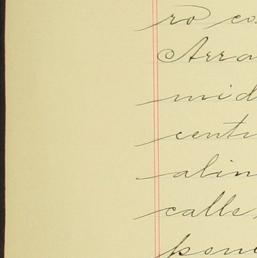 ro co
Arra
mid
centr
alin
calle
pone